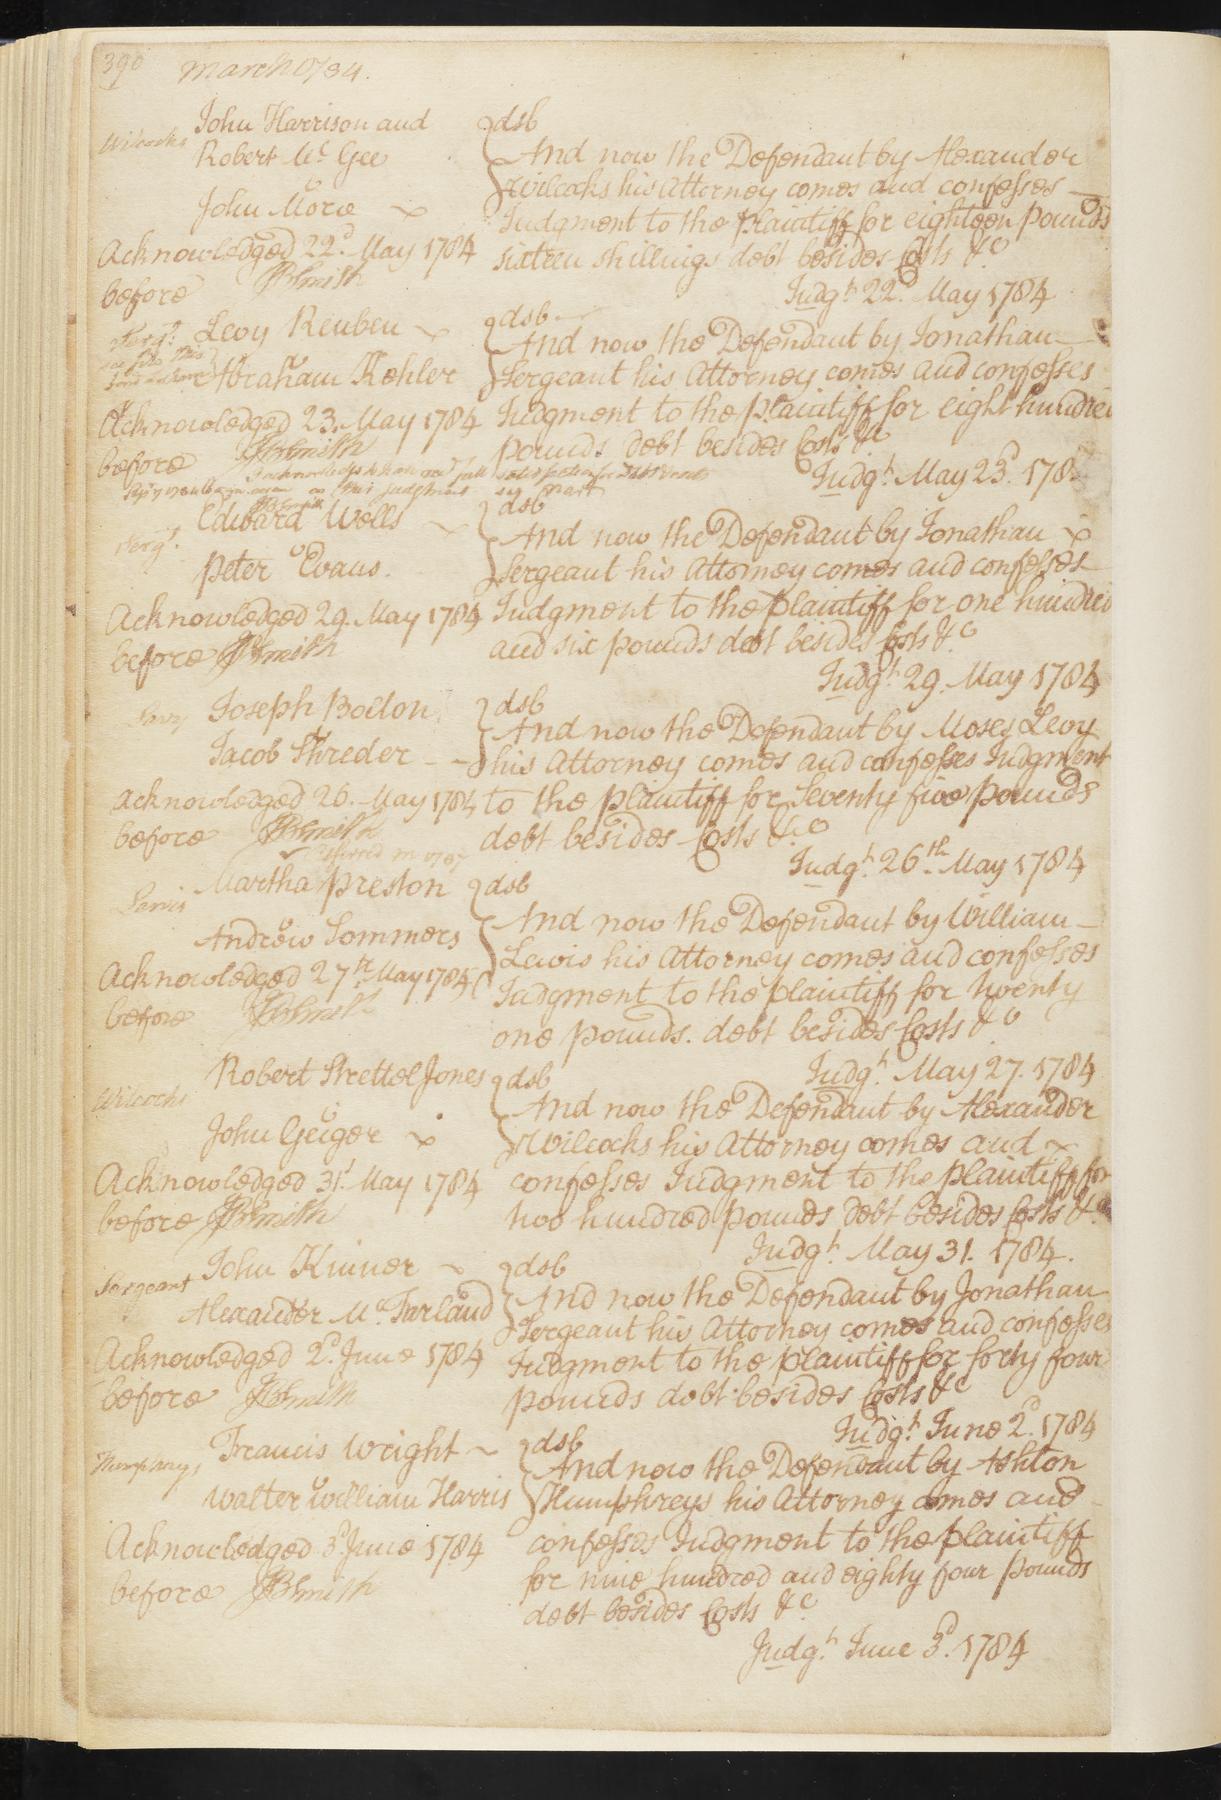 390 March 1784.
Wilcocks
John Harrison and
Robert Mc Gee
v
John More
Acknowledged 22d. May 1784
before JBSmith
dsb
And now the Defendant by Alexander
Wilcocks his Attorney comes and confesses
Judgment to the Plaintiff for eighteen Pounds
sixteen shillings debt besides Costs &c
Judgt. 22d. May 1784
Sergt.
Levy Reuben
v
Abraham Kehler
Acknowledged 23. May 1784
before JBSmith
dsb
And now the Defendant by Jonathan
Sergeant his Attorney comes and confesses
Judgment to the Plaintiff for eight hundred
pounds debt besides Costs &c
Judgt. May 23d. 178
Sergt.
Edward Wells
v
Peter Evans.
Acknowledged 29. May 1784
before JBSmith
dsb
And now the Defendant by Jonathan
Sergeant his Attorney comes and confesses
Judgment to the Plaintiff for one hundred
and six pounds debt besides Costs &c
Judgt. 29. May 1784
Levy
Joseph Bodon
v
Jacob Shreder
Acknowledged 26. May 1784
before JBSmith
dsb
And now the Defendant by Moses Levy
his Attorney comes and confesses Judgment
to the plaintiff for Seventy five pounds
debt besides Costs &c
Judgt. 26th. May 1784
Lewis
Martha Preston
v
Andrew Sommers
Acknowledged 27th May 1784
before JBSmith
dsb
And now the Defendant by William
Lewis his Attorney comes and confesses
Judgment to the plaintiff for twenty
one pounds. debt besides Costs &c
Judgt. May 27. 1784
Wilcocks
Robert Strettel Jones
v
John Geiger
Acknowledged 31st. May 1784
before JBSmith
dsb
And now the Defendant by Alexander
Wilcocks his Attorney comes and
confesses Judgment to the Plaintiff for
two hundred pounds debt besides Costs &c
Judgt. May 31. 1784.
Sergeant
John Kinner
v
Alexander Mc. Farland
Acknowledged 2d. June 1784
before JBSmith
dsb
And now the Defendant by Jonathan
Sergeant his Attorney comes and confesses
Judgment to the plaintiff for forty four
pounds debt besides Costs &c
Judgt. June 2d. 1784
Humphreys
Francis Wright
v
Walter William Harris
Acknowledged 3d. June 1784
before JBSmith
dsb
And now the Defendant by Ashton
Humphreys his Attorney comes and
confesses Judgment to the plaintiff
for nine hundred and eighty four pounds
debt besides Costs &c
Judgt. June 3d. 1784